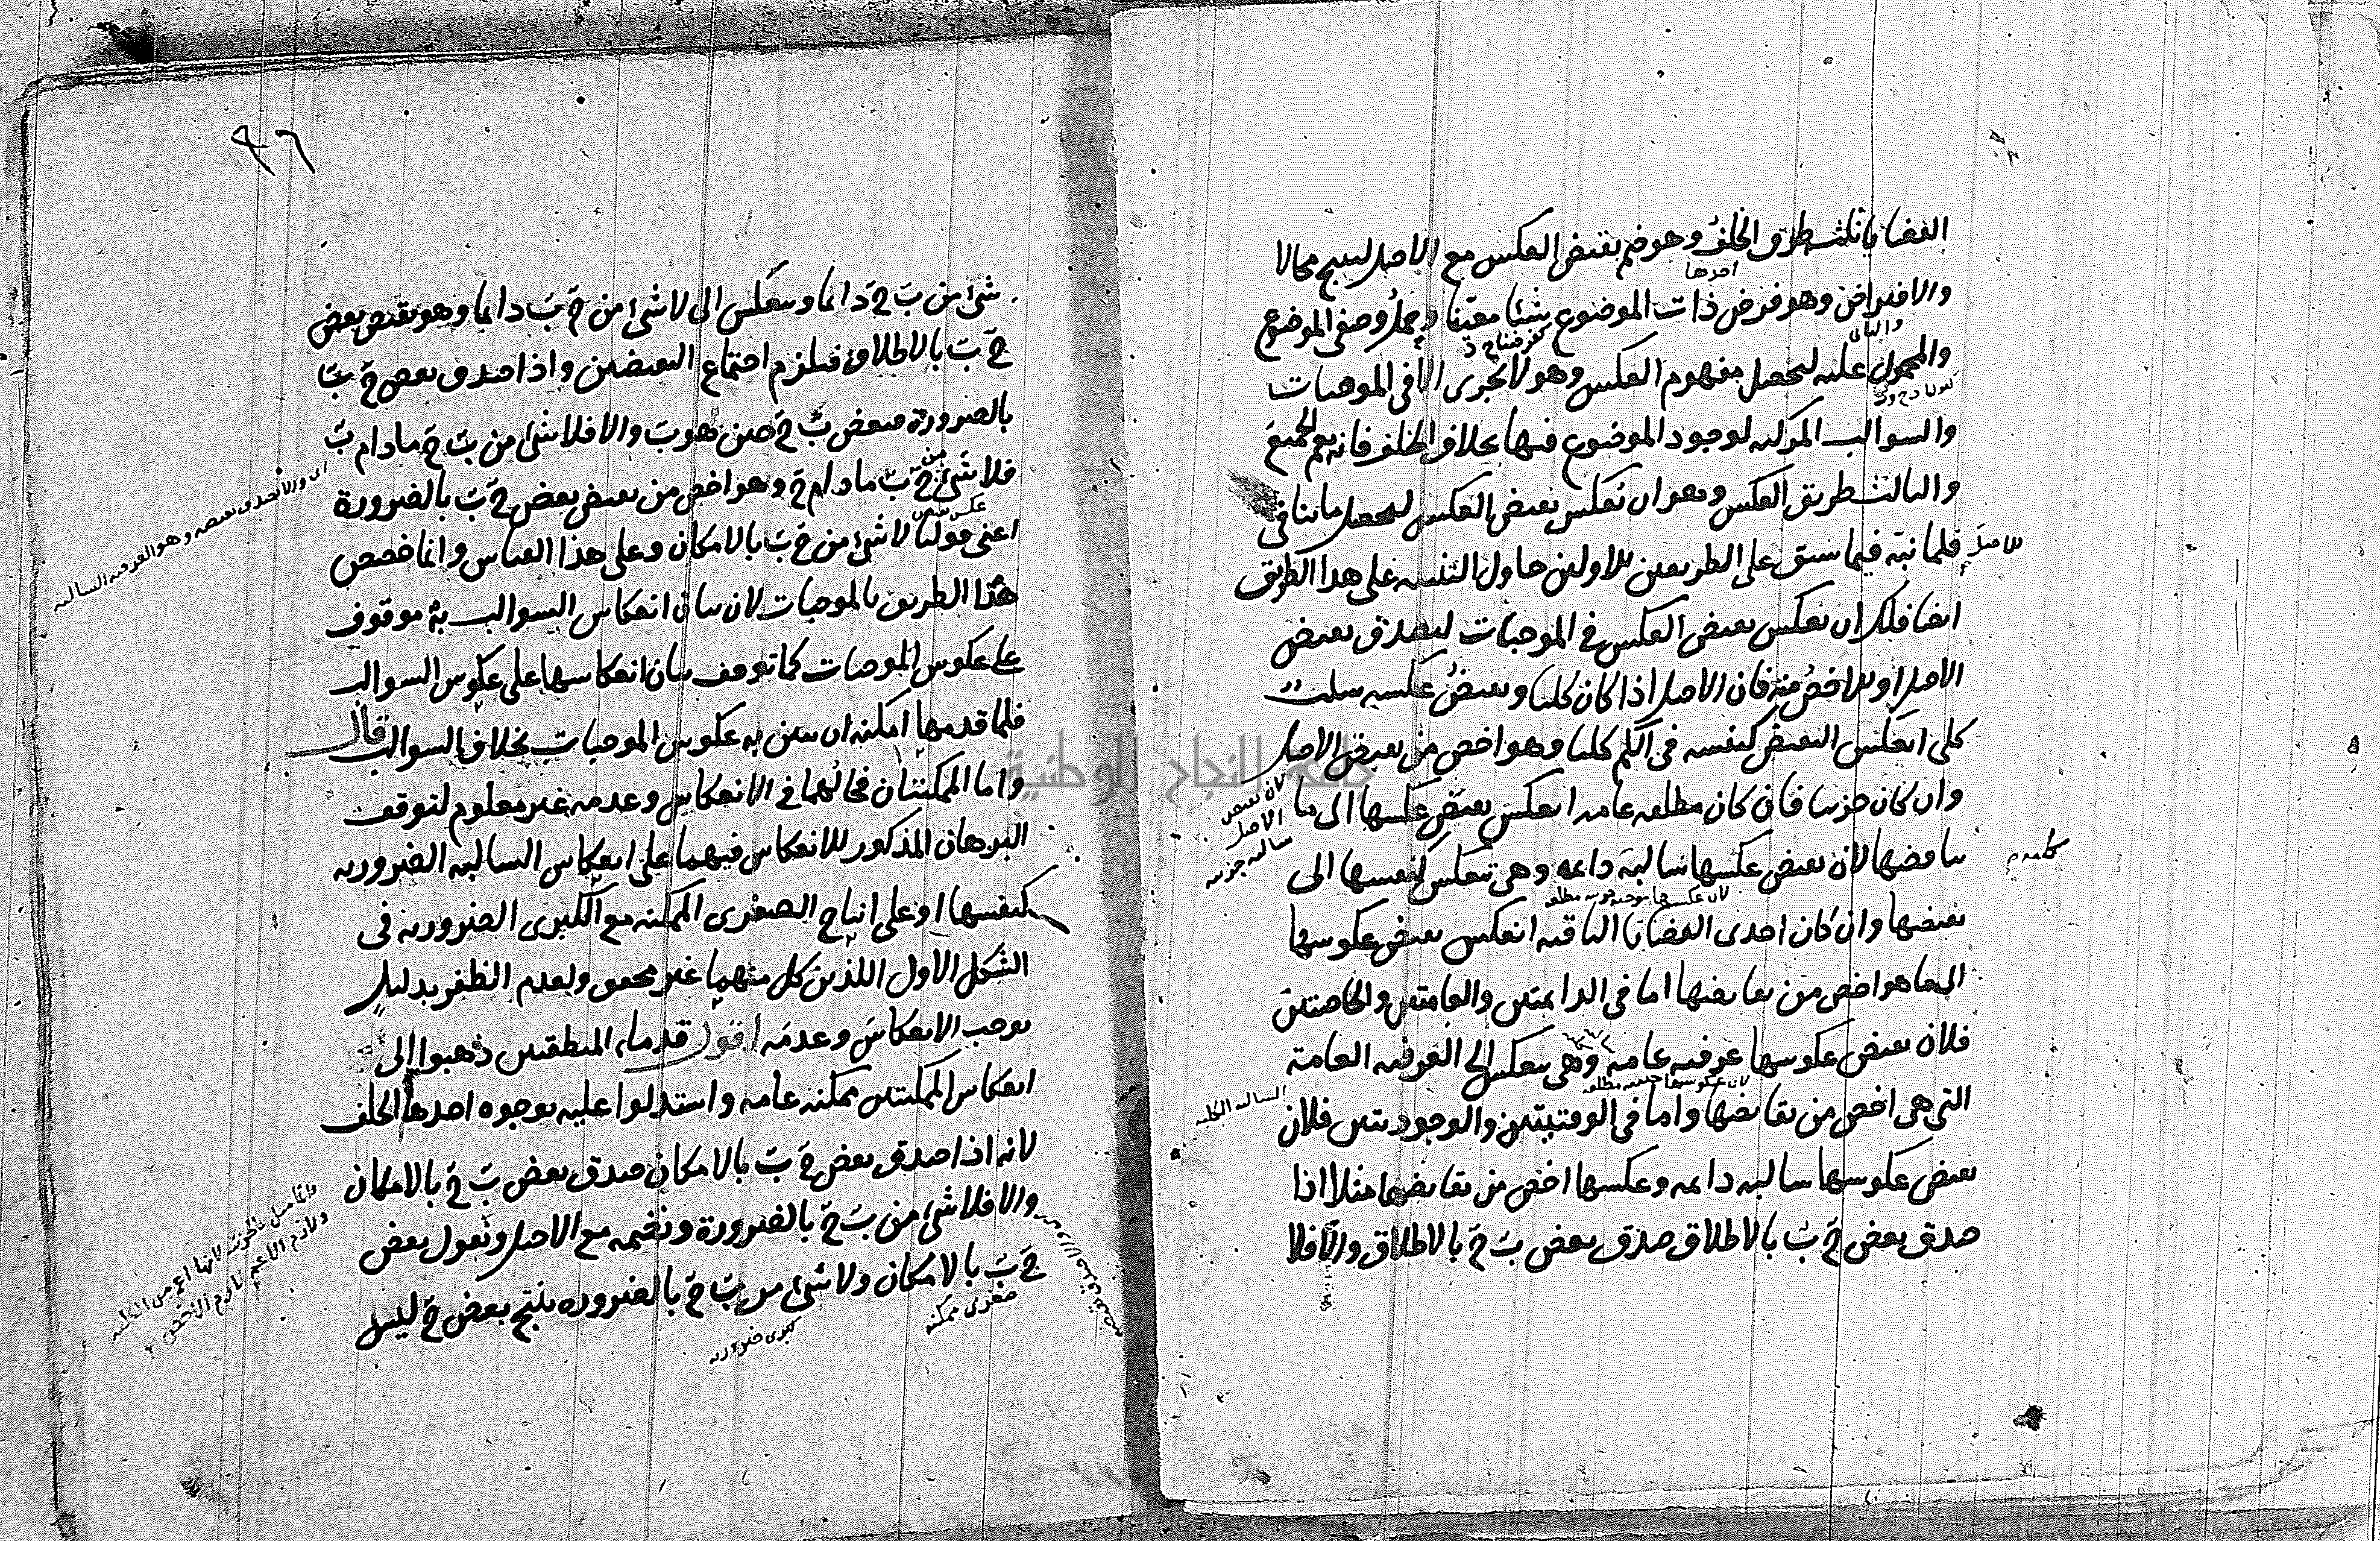 القضايا ثلث طرق الخلف وهو ضم نقيض العكس مع الاصل لينتج محالا
احدها
والافتراض وهو فرض ذات الموضوع شيئا معينا وحمل وصفى الموضوع
والثانى
كفرضناج د
والمحمول عليه ليحصل مفهوم العكس وهو لا يجرى الا فى الموجبات
والسوالب المركبه لوجود الموضوع فيها بخلاف الخلف فانه يعم الجميع
والثالث طريق العكس وهو ان تعكس نقيض العكس ليحصل ما ينافى
الاصل فلما نبه فيما سبق على الطريقين الاولين حاول التنبيه على هذا الطريق
ايضا فلك ان تعكس نقيض العكس فى الموجبات ليصدق نقيض
الاصل او الاخص منه فان الاصل اذا كان كليا ونقيض عكسه سلب
كلى انعكس النقيض كنفسه فى الكم كليا وهو اخص من نقيض الاصل
لان نقيض
الاصل
سالبه جزئيه
وان كان جزئيا فان كان مطلقه عامه انعكس نقيض عكسها الى ما
يناقضها لان نقيض عكسها سالبة دائمه وهى تنعكس كنفسها الى
كليه
لان عكسها موجبه جزئيه مطلقه
نقيضها وان كان احدى القضايا الباقيه انعكس نقيض عكوسها
الى ما هو اخص من نقايضها اما فى الدائمتين والعامتين والخاصتين
فلان نقيض عكوسها عرفيه عامه وهى تنعكس الى العرفيه العامة
لان عكوسها حينيه مطلقه
السالبه الكليه
التى هى اخص من نقايضها واما فى الوقتيتين والوجوديتين فلان
نقيض عكوسها سالبه دائمه وعكسها اخص من نقايضها مثلا اذا
صدق بعض ج ب بالاطلاق صدق بعض ب ج بالاطلاق والا فلا
٩٦
شئ من ب ج دائما وينعكس الى لا شئ من ج ب دائما وهو نقيض بعض
ج ب بالاطلاق فيلزم اجتماع النقيضين واذا صدق بعض ج ب
بالضرورة فبعض ب ج حين هو ب والا فلا شئ من ب ج مادام ب
اى وان لا يصدق نقيضه وهو العرفيه السالبه
فلا شئ من ج ب مادام ج وهو اخص من نقيض بعض ج ب بالضرورة
اعنى قولنا لا شئ من ج ب بالامكان وعلى هذا القياس وانما خصص
هذا الطريق بالموجبات لان بيان انعكاس السوالب به موقوف
على عكوس الموجبات كما توقف بيان انعكاسها على عكوس السوالب
فلما قدمها امكنه ان يبين به عكوس الموجبات بخلاف السوالب قال
واما الممكنتان فحالهما فى الانعكاس وعدمه غير معلوم لتوقف
البرهان المذكور للانعكاس فيهما على انعكاس السالبه الضروريه
كنفسها او على انتاج الصغرى الممكنه مع الكبرى الضروريه فى
الشكل الاول اللذين كل منهما غير محقق ولعدم الظفر بدليل
يوجب الانعكاس وعدمه اقول قدماء المنطقيين ذهبوا الى
انعكاس الممكنتين ممكنه عامه واستدلوا عليه بوجوه احدها الخلف
لانه اذا صدق بعض ج ب بالامكان صدق بعض ب ج بالامكان
والا فلا شئ من ب ج بالضرورة ونضمه مع الاصل ونقول بعض
ج ب بالامكان ولا شئ من ب ج بالضروره ينتج بعض ج ليس
صغرى ممكنه
كبرى ضروريه
جامعة النجاح الوطنية